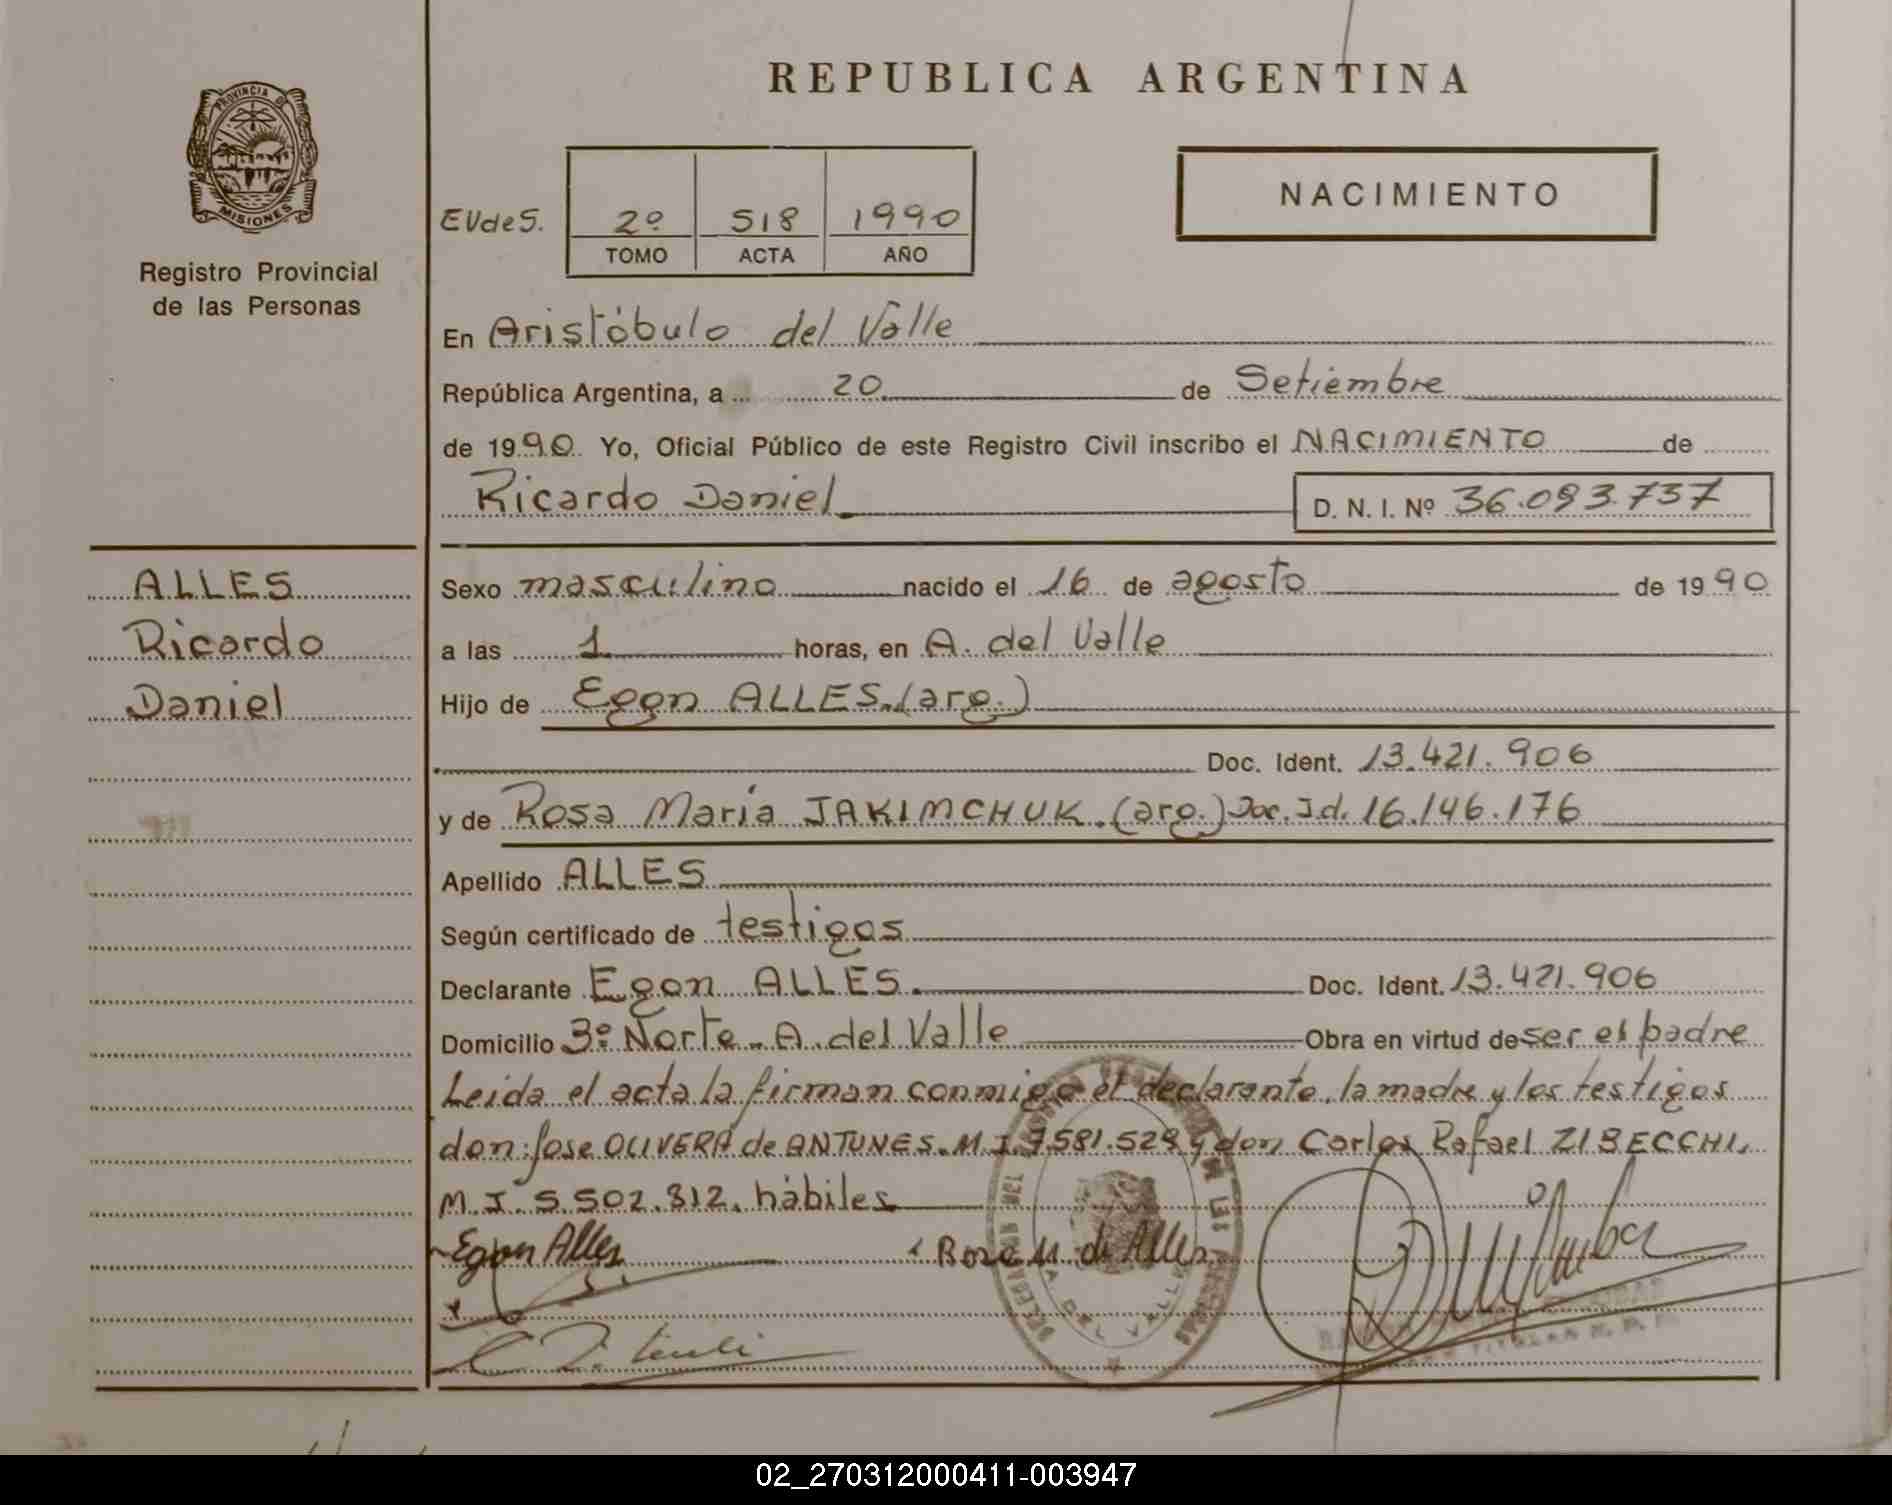 REPUBLICA ARGENTINA
PROVINCIA DE
MISIONES
Registro Provincial
de las Personas
NACIMIENTO
EVdeS. 2º 518 1990
TOMO ACTA AÑO
En Aristóbulo del Valle
República Argentina, a 20 de Setiembre
de 1990 Yo, Oficial Público de este Registro Civil inscribo el NACIMIENTO de
Ricardo Daniel D. N. I. Nº 36.093.737
ALLES
Ricardo
Daniel
Sexo masculino nacido el 16 de agosto de 1990
a las 1 horas, en A. del Valle
Hijo de Egon ALLES.(arg.)
Doc. Ident. 13.421.906
y de Rosa María JAKIMCHUK.(arg.) Doc. Id. 16.146.176
Apellido ALLES
Según certificado de testigos
Declarante Egon ALLES. Doc. Ident. 13.421.906
Domicilio 3º Norte - A. del Valle Obra en virtud de ser el padre
Leida el acta la firman conmigo el declarante, la madre y los testigos
don: Jose OLIVERA de ANTUNES. M.I. 7.581.529 y don Carlos Rafael ZIBECCHI,
M.I. 5.502.812, hábiles
Egon Alles Rosa M. de Alles
A. DEL VALLE
02_270312000411-003947